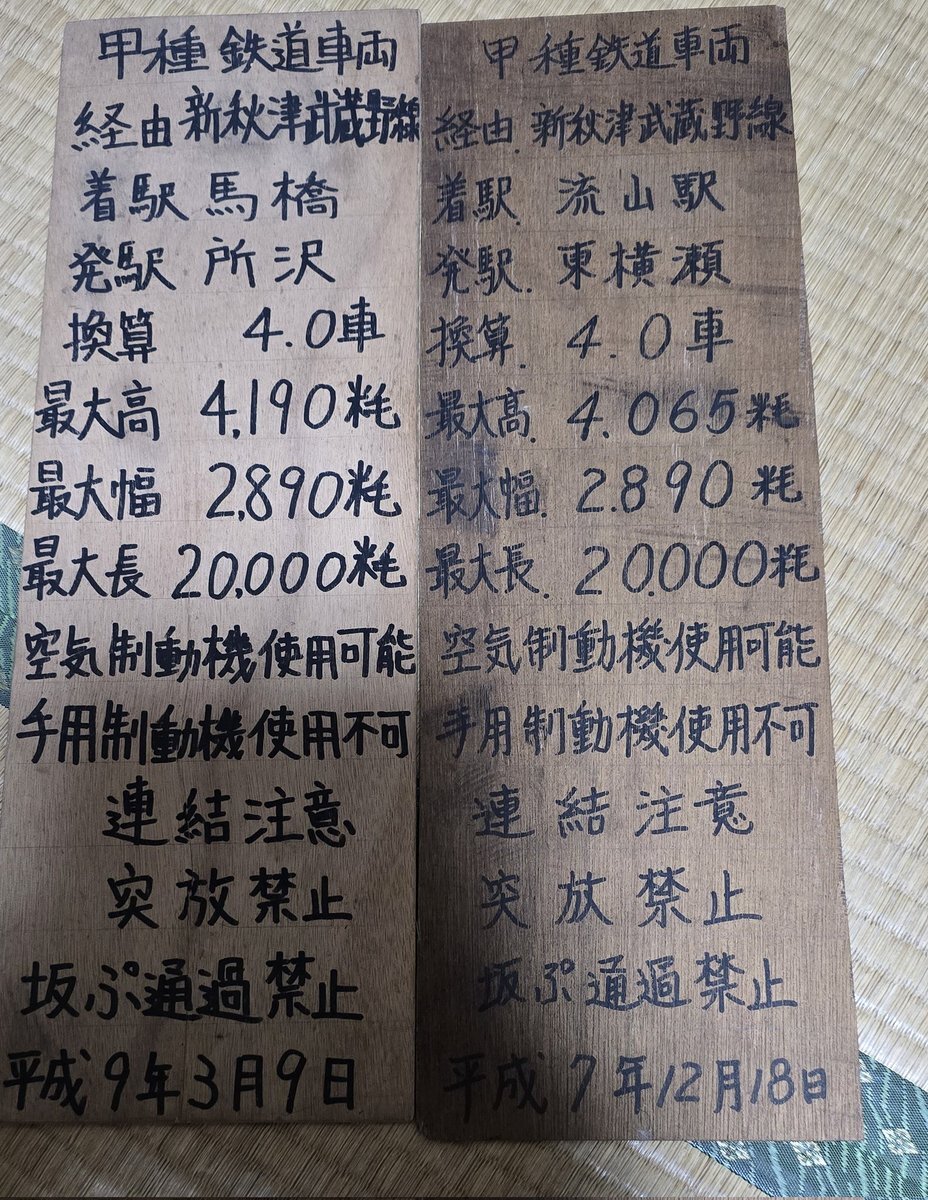 甲種鉄道車両
経由 新秋津武蔵野線
着駅 馬橋
発駅 所沢
換算 4.0車
最大高 4,190粍
最大幅 2,890粍
最大長 20,000粍
空気制動機使用可能
手用制動機使用不可
連結注意
突放禁止
坂ぷ通過禁止
平成9年3月9日
甲種鉄道車両
経由. 新秋津武蔵野線
着駅. 流山駅
発駅. 東横瀬
換算. 4.0車
最大高. 4.065粍
最大幅. 2.890粍
最大長. 20.000粍
空気制動機使用可能
手用制動機使用不可
連結注意
突放禁止
坂ぷ通過禁止
平成7年12月18日